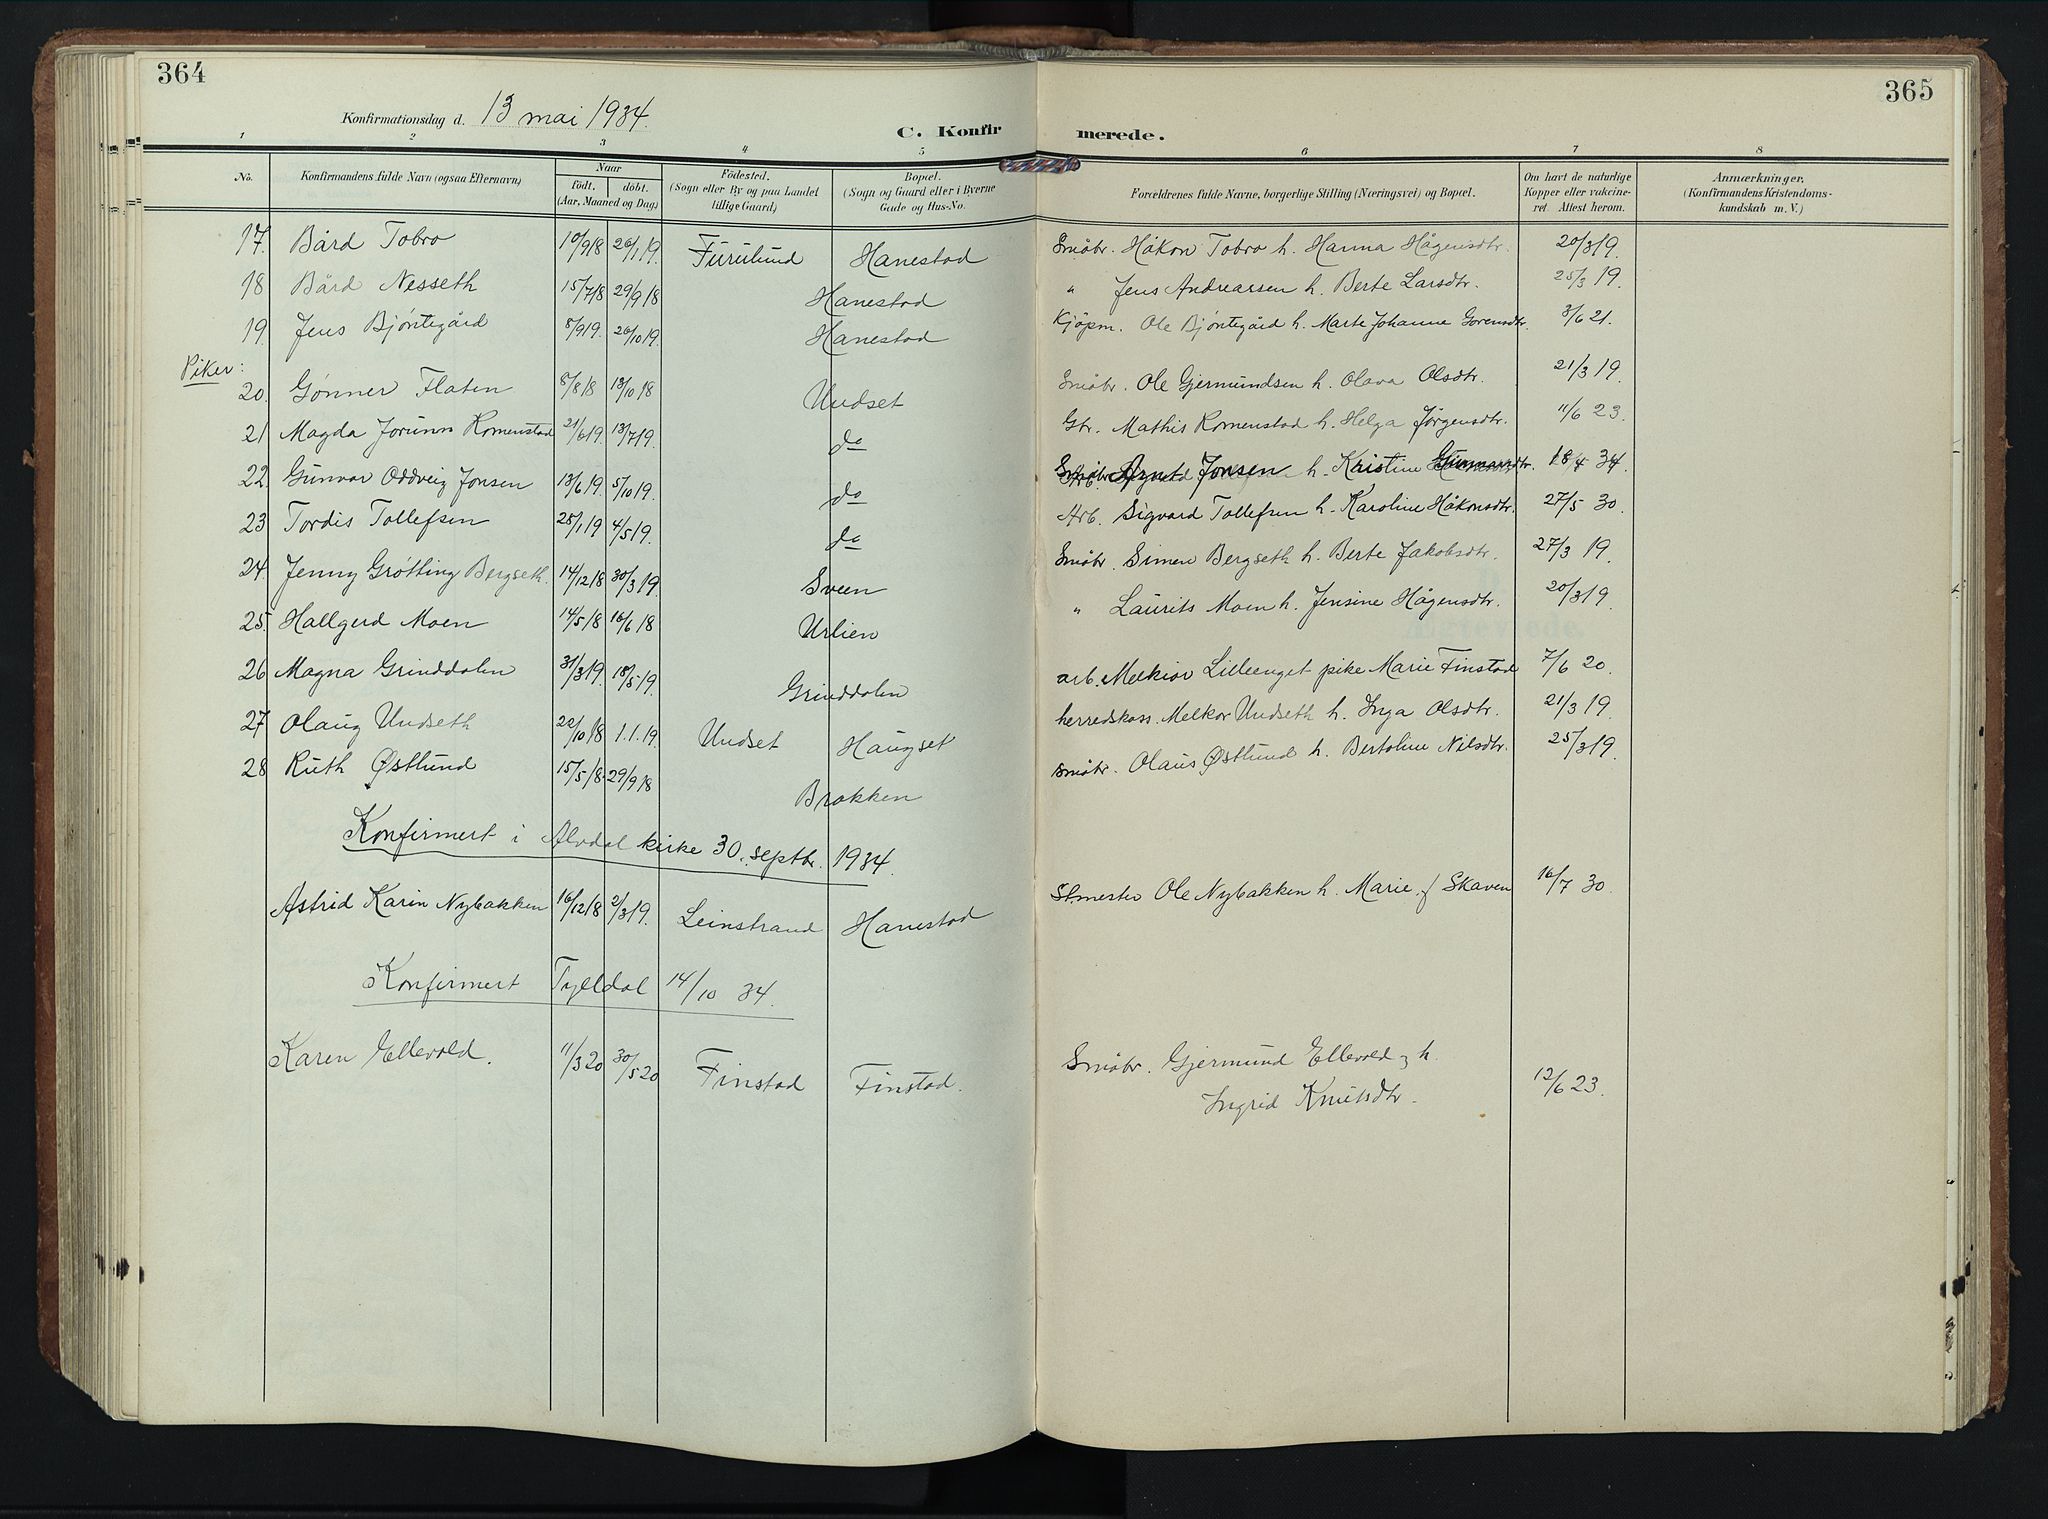 364
365
Konfirmationsdag d. 13 mai 1934.
C. Konfirmerede.
1 2 3 4 5 6 7 8
No. Konfirmandens fulde Navn (ogsaa Efternavn) Naar født. døbt. (Aar, Maaned og Dag) Fødested. (Sogn eller By og paa Landet tillige Gaard) Bopæl. (Sogn og Gaard eller i Byerne Gade og Hus-No. Forældrenes fulde Navne, borgerlige Stilling (Næringsvei) og Bopæl. Om havt de naturlige Kopper eller vakcineret. Attest herom. Anmærkninger, (Konfirmandens Kristendomskundskab m. V.)
17. Bård Tobro 10/918 26/119. Furulund Hanestad Småbr. Håkon Tobro h. Hanna Hågensdtr. 20/319.
18 Bård Nesseth 15/718 29/918 Hanestad " Jens Andreassen h. Berte Larsdtr. 25/319.
19. Jens Bjøntegård 8/919. 26/1019. Hanestad Kjøpm. Ole Bjøntegård h. Marte Johanne Gorensdtr. 3/621.
Piker:
20. Gønner Flaten 8/818 13/1018 Undset Småbr. Ole Gjermundsen h. Olava Olsdtr. 21/319.
21 Magda Jorunn Romenstad 21/619. 13/719. do Gbr. Mathis Romenstad h. Helga Jørgensdtr. 11/6 23.
22. Gunvor Oddveig Jonsen 13/619. 5/1019. do Småbr. Arnt Jonsen h. Kristine Gunnarsdtr. 18/4 34.
23 Tordis Tollefsen 28/119 4/519. do Arb. Sigvard Tollefsen h. Karoline Håkonsdtr. 27/5 30.
24. Jenny Grøtting Bergseth. 14/1218 30/319. Sveen Småbr. Simen Bergseth h. Berte Jakobsdtr. 27/3 19.
25. Hallgerd Moen 14/518 16/618 Urlien " Laurits Moen h. Jensine Hågensdtr. 20/319.
26 Magna Grinddalen 31/319. 18/519. Grinddalen arb. Melkior Lilleenget pike Marie Finstad 7/6 20.
27 Olaug Undseth 22/1018 1.1.19. Undset Haugset herredskass. Melkor Undseth h. Inga Olsdtr. 21/319.
28 Ruth Østlund 15/518. 29/918 Brakken småbr. Olaus Østlund h. Bertoline Nilsdtr. 25/319.
Konfirmert i Alvdal kirke 30. septbr. 1934.
Astrid Karin Nybakken 16/1218 2/319. Leinstrand Hanestad St.mester Ole Nybakken h. Marie f. Skaven 16/7 30.
Konfirmert Tylldal 14/10 34.
Karen Ellevold. 11/320 30/520 Finstad Finstad. Småbr. Gjermund Ellevold og h.
Ingrid Knutsdtr. 12/623.